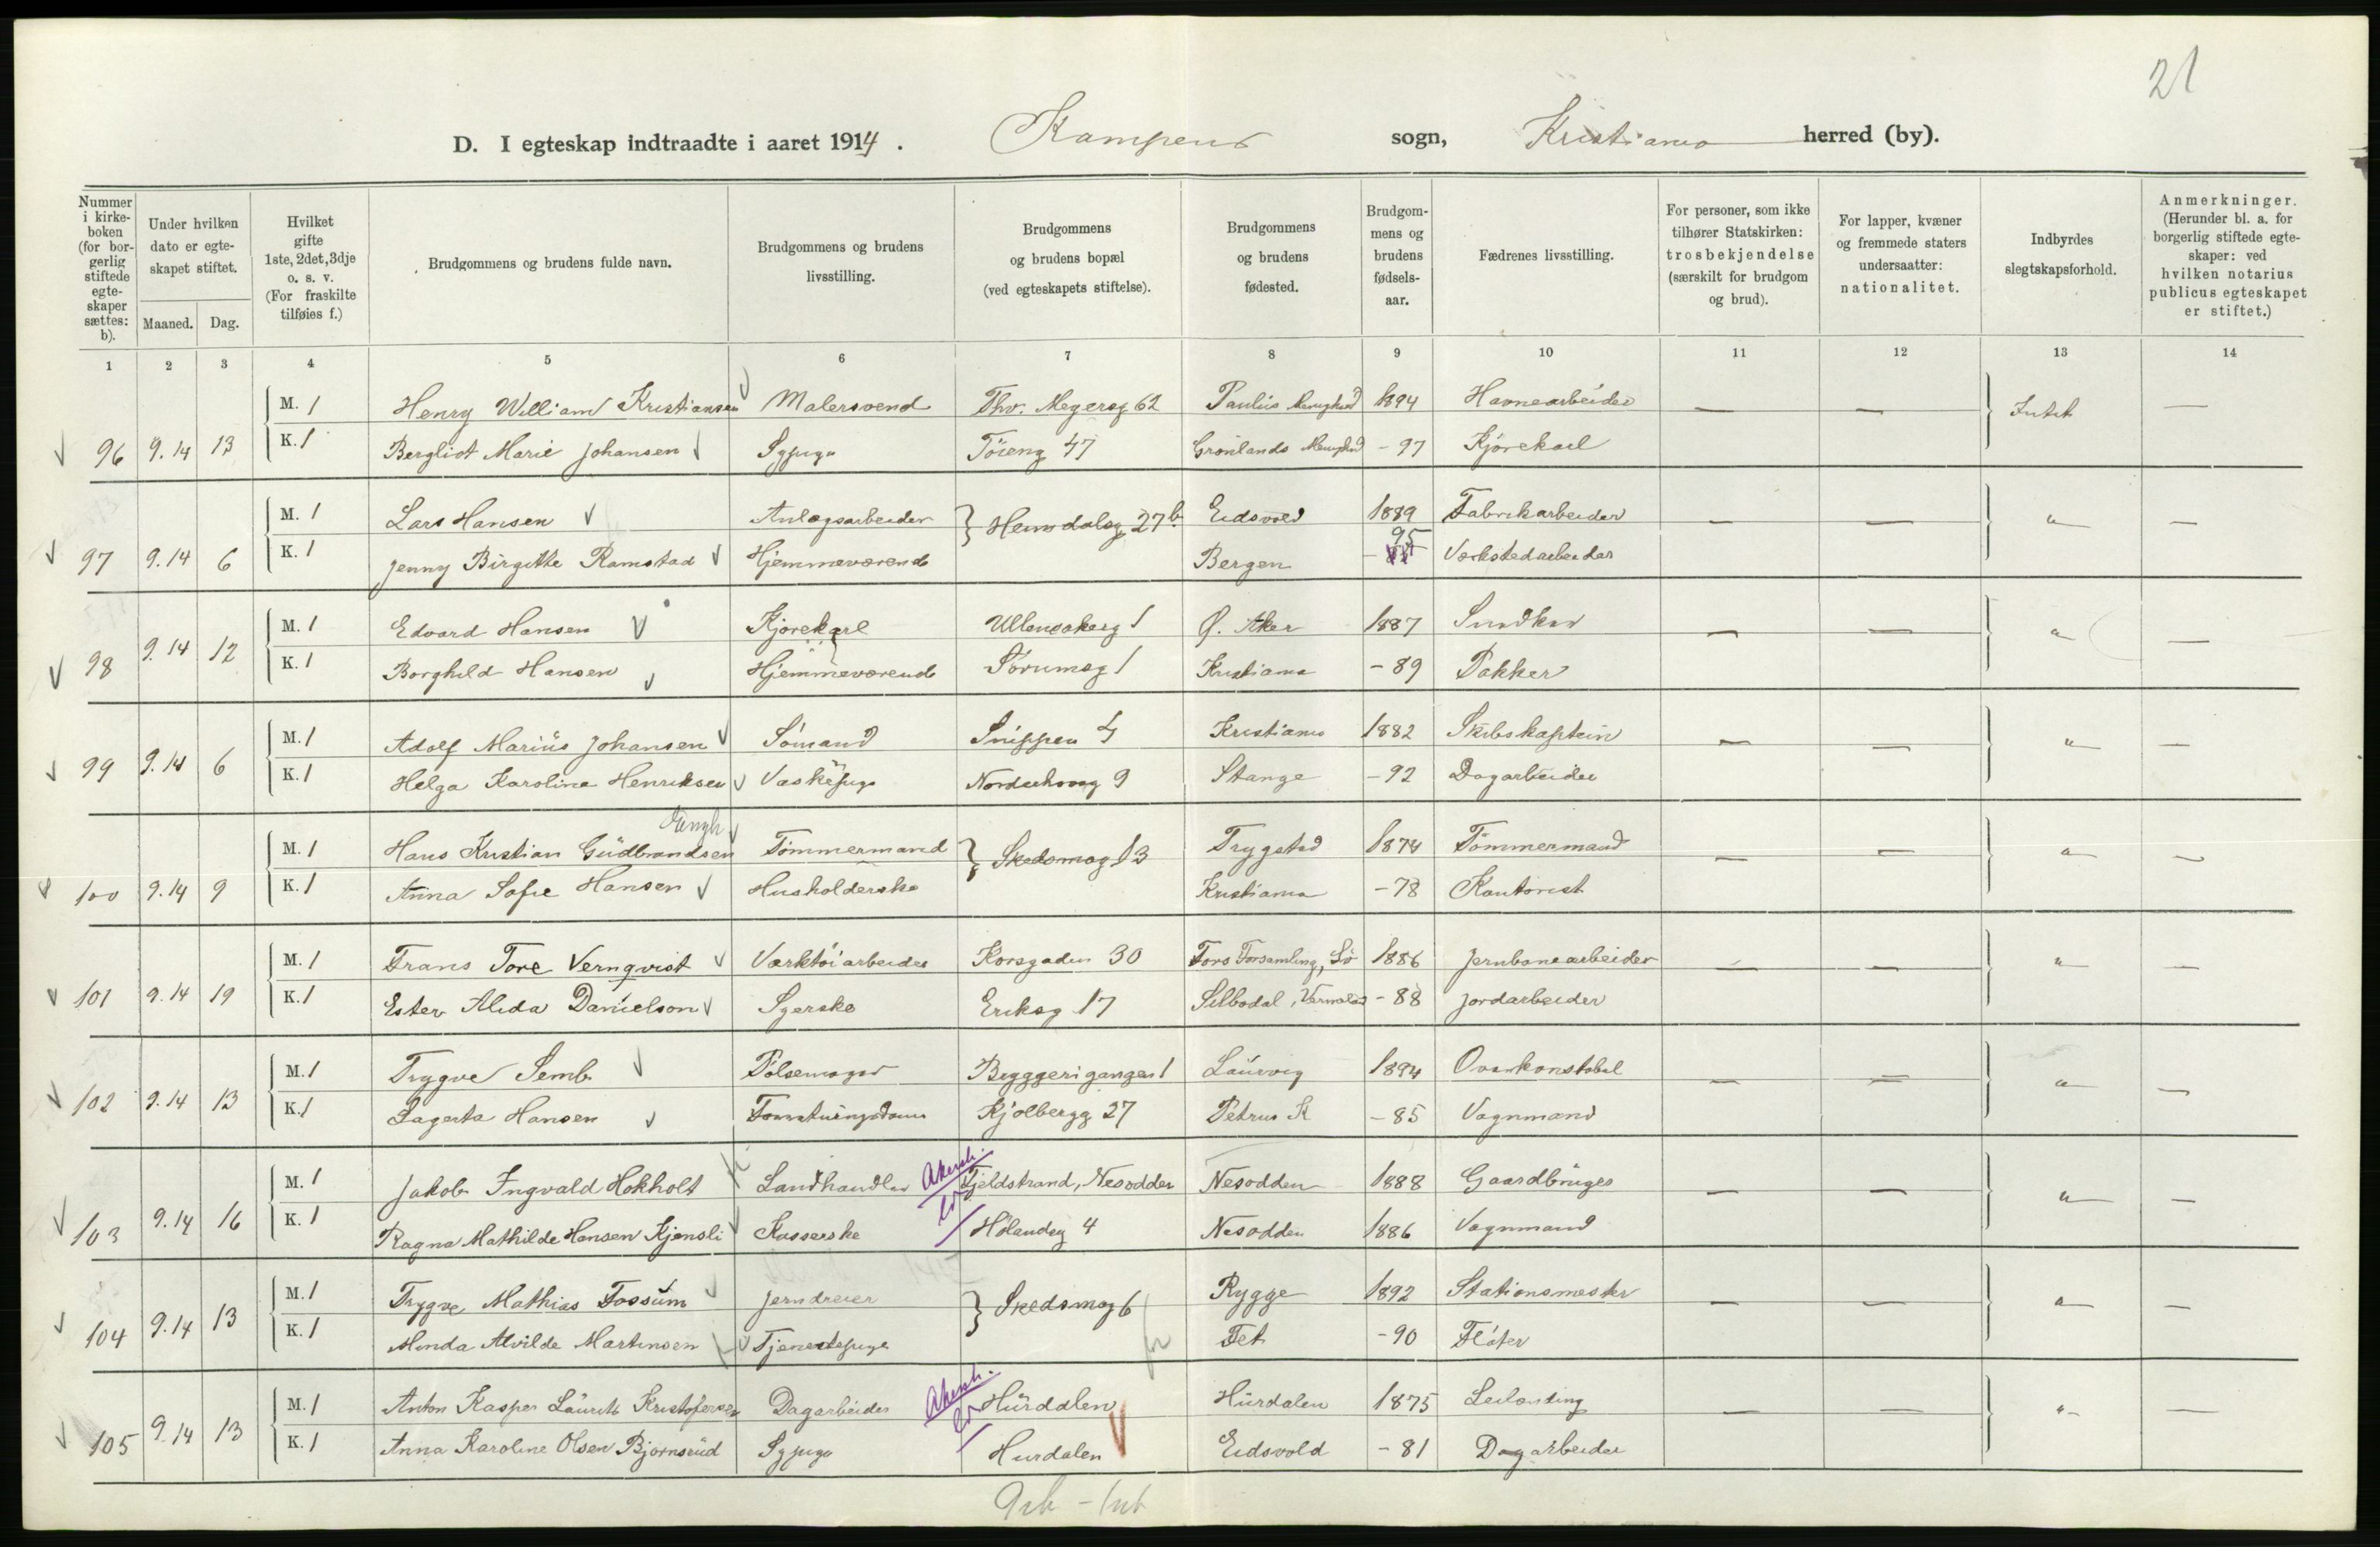 21
D. I egteskap indtraadte i aaret 1914. Kampens sogn, Kristiania herred (by).
Nummer i kirkeboken (for borgerlig stiftede egteskaper sættes: b).
Under hvilken dato er egteskapet stiftet.
Maaned. Dag.
Hvilket gifte 1ste, 2det, 3dje o. s. v. (For fraskilte tilføies f.)
Brudgommens og brudens fulde navn.
Brudgommens og brudens livsstilling.
Brudgommens og brudens bopæl (ved egteskapets stiftelse).
Brudgommens og brudens fødested.
Brudgommens og brudens fødselsaar.
Fædrenes livsstilling.
For personer, som ikke tilhører Statskirken: trosbekjendelse (særskilt for brudgom og brud).
For lapper, kvæner og fremmede staters undersaatter: nationalitet.
Indbyrdes slegtskapsforhold.
Anmerkninger. (Herunder bl. a. for borgerlig stiftede egteskaper: ved hvilken notarius publicus egteskapet er stiftet.)
1 2 3 4 5 6 7 8 9 10 11 12 13 14
M. 1 Henry William Kristiansen Malersvend Thv. Meyersg 62 Paulus Menighed 1894 Havnearbeider — — Intet —
96 9.14 13 K. 1 Bergliot Marie Johansen Sypige Töieng 47 Grönlands Menighed - 97 Kjörekarl
M. 1 Lars Hansen Anlægsarbeider Heimdalsg 27b Eidsvold 1889 Fabrikarbeider — — " —
97 9.14 6 K. 1 Jenny Birgitte Ramstad Hjemmeværende Bergen - 95 Værkstedarbeider
M. 1 Edvard Hansen Kjörekarl Ullensakerg 1 Ø. Aker 1887 — — " —
98 9.14 12 K. 1 Borghild Hansen Hjemmeværende Sörumsg 1 Kristiania - 89 Pakker
M. 1 Adolf Marius Johansen Sömand Snippen 4 Kristiania 1882 Skibskaptein — — " —
99 9.14 6 K. 1 Helga Karoline Henriksen Vaskepige Norderhovsg 9 Stange - 92 Dagarbeider
M. 1 Hans Kristian Gudbrandsen Tömmermand Skedsmog 13 Trygstad 1874 Tömmermand — — " —
100 9.14 9 K. 1 Anna Sofie Hansen Husholderske Kristiania - 78 Kontorist
M. 1 Frans Tore Vernqvist Værktöiarbeider Korsgaden 30 Fors Forsamling, Sv 1886 Jernbanearbeider — — " —
101 9.14 19 K. 1 Ester Alida Danielson Syerske Eriksg 17 Silbodal, Vermland - 88 Jordarbeider
M. 1 Trygve Semb Pölsemager Byggerigangen 1 Laurvig 1894 Overkonstabel — — " —
102 9.14 13 K. 1 Lagerta Hansen Forretningsdame Kjölbergg 27 Petrus K - 85 Vognmand
M. 1 Jakob Ingvald Hokholt Landhandler Akersh. Fjeldstrand, Nesodden Nesodden 1888 Gaardbruger — — " —
103 9.14 16 K. 1 Ragna Mathilde Hansen Kjensli Kasserske Hölandsg 4 Nesodden 1886 Vognmand
M. 1 Trygve Mathias Fossum Jerndreier Skedsmog 6 Rygge 1892 Stationsmester — — " —
104 9.14 13 K. 1 Minda Alvilde Martinsen Tjenestepige Fet - 90 Flöter
M. 1 Anton Kasper Laurits Kristofersen Dagarbeider Akersh. Hurdalen Hurdalen 1875 Leilending — — " —
105 9.14 13 K. 1 Anna Karoline Olsen Björnsrud Sypige Hurdalen Eidsvold - 81 Dagarbeider